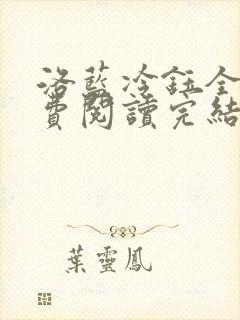 洛藍冷鈺全
費閱讀完結
葉靈鳳